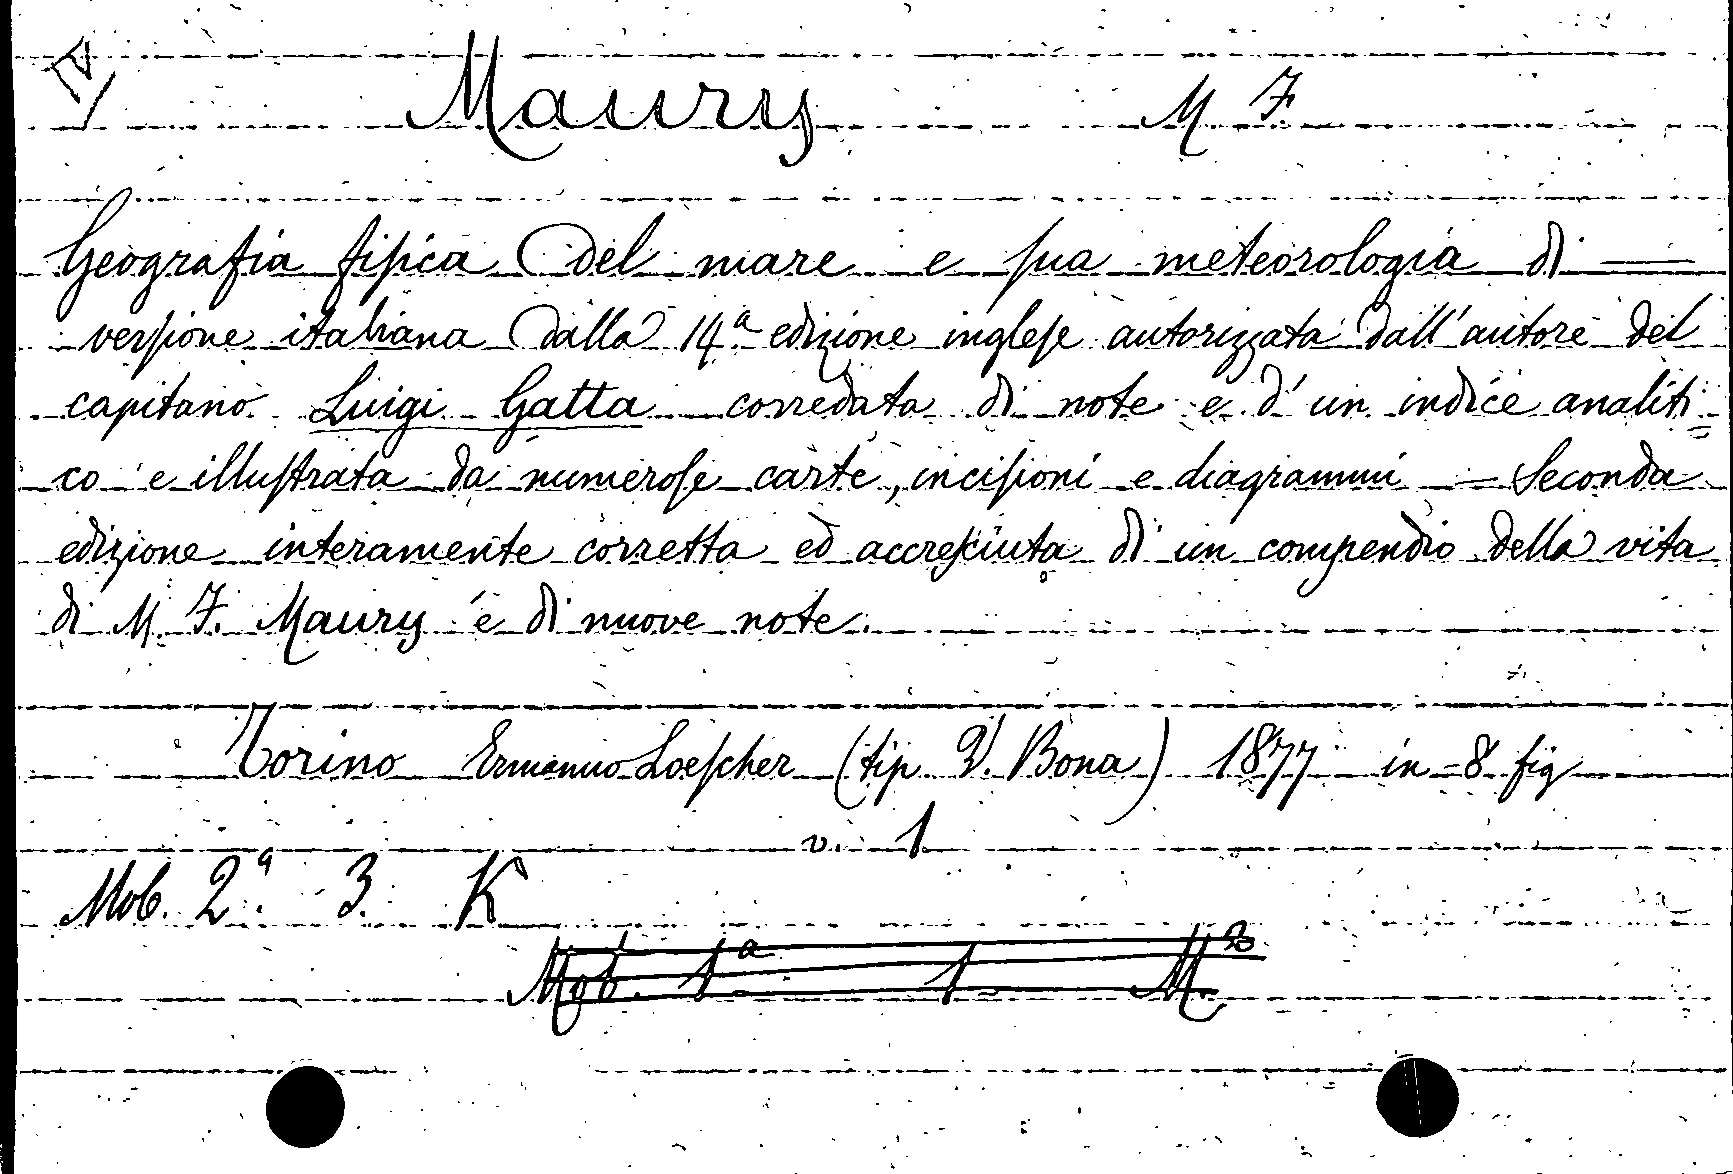 IV
Maury M F
Geografia fisica del mare e sua meteorologia di —
versione italiana dalla 14ª edizione inglese autorizzata dall'autore del
capitano Luigi Gatta corredata di note e d'un indice analiti-
co e illustrata da numerose carte, incisioni e diagrammi — Seconda
edizione interamente corretta ed accresciuta di un compendio della vita
di M. F. Maury e di nuove note.
Torino Ermanno Loescher (tip V. Bona) 1877 in-8 fig
v. 1
Mob. 2ª. 3. K
Mob. 1ª 1. M.